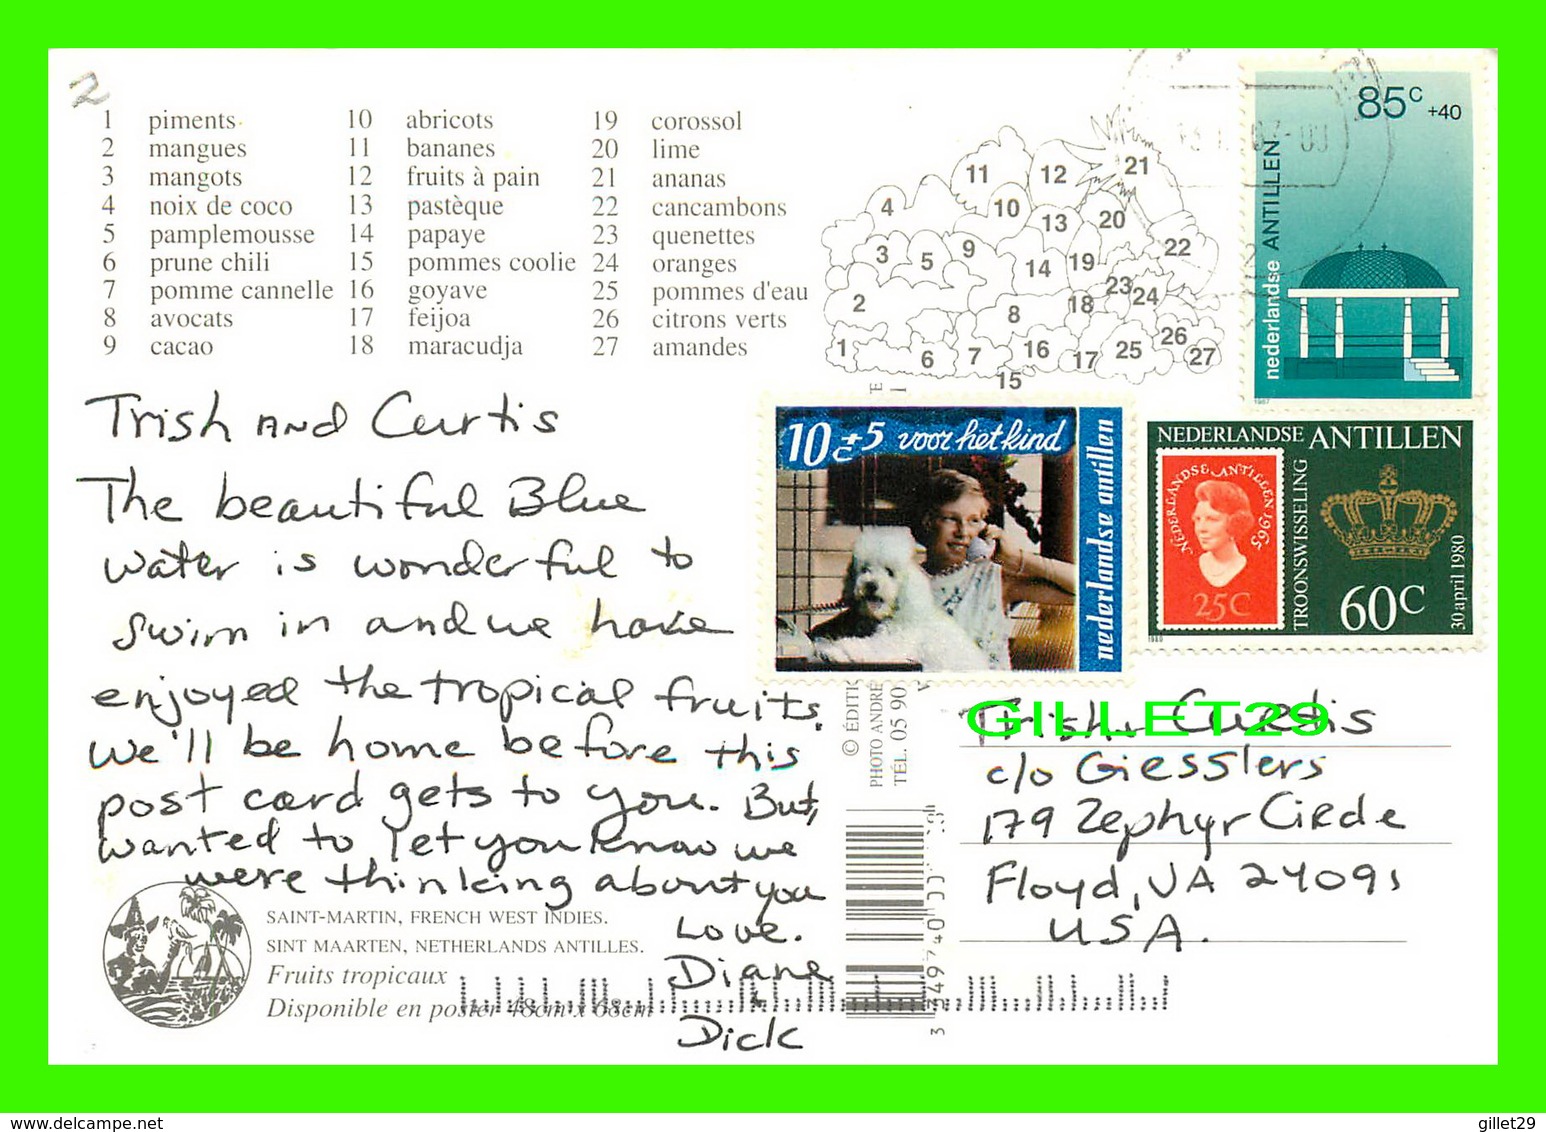 2
1 piments
2 mangues
3 mangots
4 noix de coco
5 pamplemousse
6 prune chili
7 pomme cannelle
8 avocats
9 cacao
10 abricots
11 bananes
12 fruits à pain
13 pastèque
14 papaye
15 pommes coolie
16 goyave
17 feijoa
18 maracudja
19 corossol
20 lime
21 ananas
22 cancambons
23 quenettes
24 oranges
25 pommes d'eau
26 citrons verts
27 amandes
11 12 21
4 10 13 20
3 5 9 14 19 22
2 8 18 23 24
1 6 7 16 17 25 26 27
15
85c +40
nederlandse ANTILLEN
1987
10c +5 voor het kind
nederlandse antillen
NEDERLANDSE ANTILLEN
NEDERLANDSE ANTILLEN 1965
25C
TROONSWISSELING
60C
30 april 1980
1980
Trish and Curtis
The beautiful Blue
water is wonderful to
swim in and we have
enjoyed the tropical fruits.
We'll be home before this
post card gets to you. But,
wanted to let you know we
were thinking about you
Love.
Diane
&
Dick
© ÉDITI
PHOTO ANDRÉ
TÉL. 05 90
GILLET29
Trish & Curtis
c/o Giesslers
179 Zephyr Circle
Floyd, VA 24091
USA.
SAINT-MARTIN, FRENCH WEST INDIES.
SINT MAARTEN, NETHERLANDS ANTILLES.
Fruits tropicaux
Disponible en poster 48cm x 68cm
gillet29